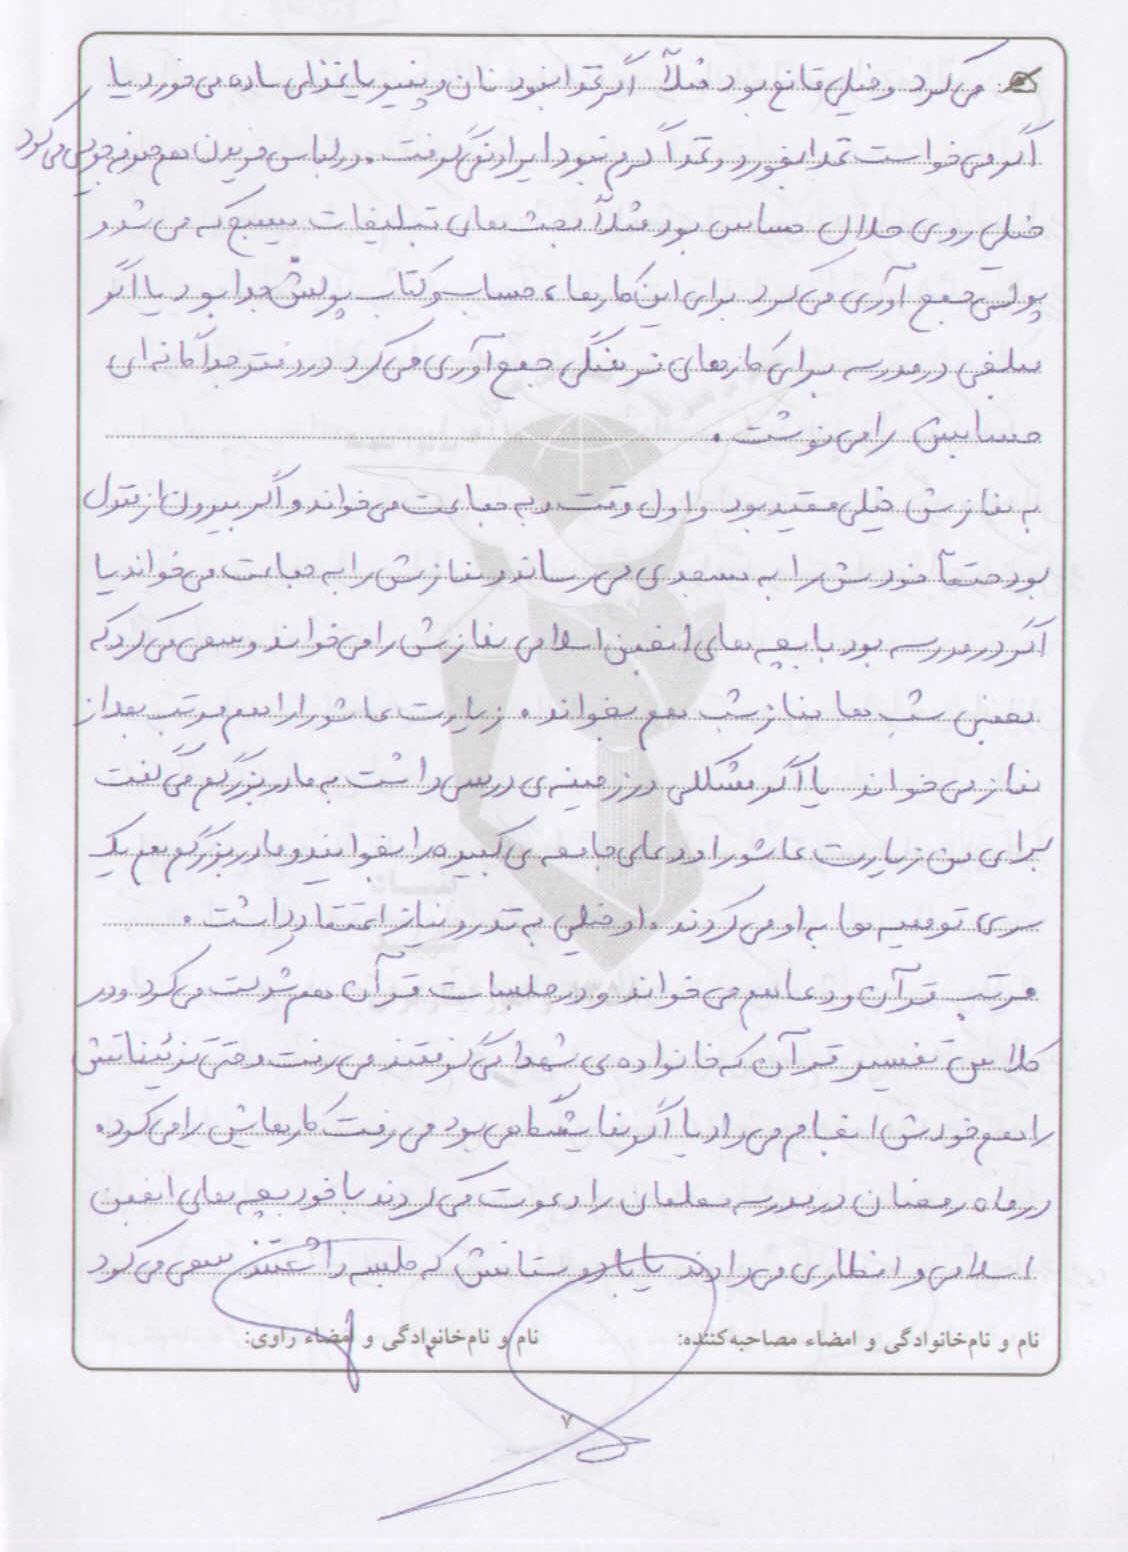 می‌کرد و خیلی قانع بود مثلاً اگر غذا نبود نان و پنیر یا غذای ساده می‌خورد یا
اگر می‌خواست غذا بخورد و غذا گرم نبود ایراد نمی‌گرفت. در لباس خریدن هم صرفه‌جویی می‌کرد
خیلی روی حلال حساس بود مثلاً بحث‌های تبلیغات بسیج که می‌شد و
پولی جمع آوری می‌کرد برای این کارها، حساب و کتاب پولش جدا بود یا اگر
مبلغی در مدرسه برای کارهای فرهنگی جمع آوری می‌کرد در دفتر جداگانه‌ای
حسابش را می‌نوشت.
به نمازش خیلی مقید بود و اول وقت و به جماعت می‌خواند و اگر بیرون از منزل
بود حتماً خودش را به مسجدی می‌رساند و نمازش را به جماعت می‌خواند یا
اگر در مدرسه بود با بچه‌های انجمن اسلامی نمازش را می‌خواند و سعی می‌کرد که
بعضی شب‌ها نماز شب هم بخواند. زیارت عاشورا را هم مرتب بعد از
نماز می‌خواند یا اگر مشکلی در زمینه‌ی درسی داشت به مادربزرگم می‌گفت
برای من زیارت عاشورا و دعای جامعه‌ی کبیره را بخوانید و مادربزرگم هم یک
سری توصیه‌ها به او می‌کردند. او خیلی به نذر و نیاز اعتقاد داشت.
مرتب قرآن و دعا هم می‌خواند و در جلسات قرآن هم شرکت می‌کرد و در
کلاس تفسیر قرآن که خانواده‌ی شهدا می‌گرفتند می‌رفت و حتی تزئیناتش
را هم خودش انجام می‌داد یا اگر نمایشگاهی بود می‌رفت کارهایش را می‌کرد.
در ماه رمضان در مدرسه معلمان را دعوت می‌کردند با خود بچه‌های انجمن
اسلامی و افطاری می‌دادند یا با دوستانش که جلسه داشتند سعی می‌کرد
نام و نام‌خانوادگی و امضاء مصاحبه‌کننده: نام و نام‌خانوادگی و امضاء راوی:
۷